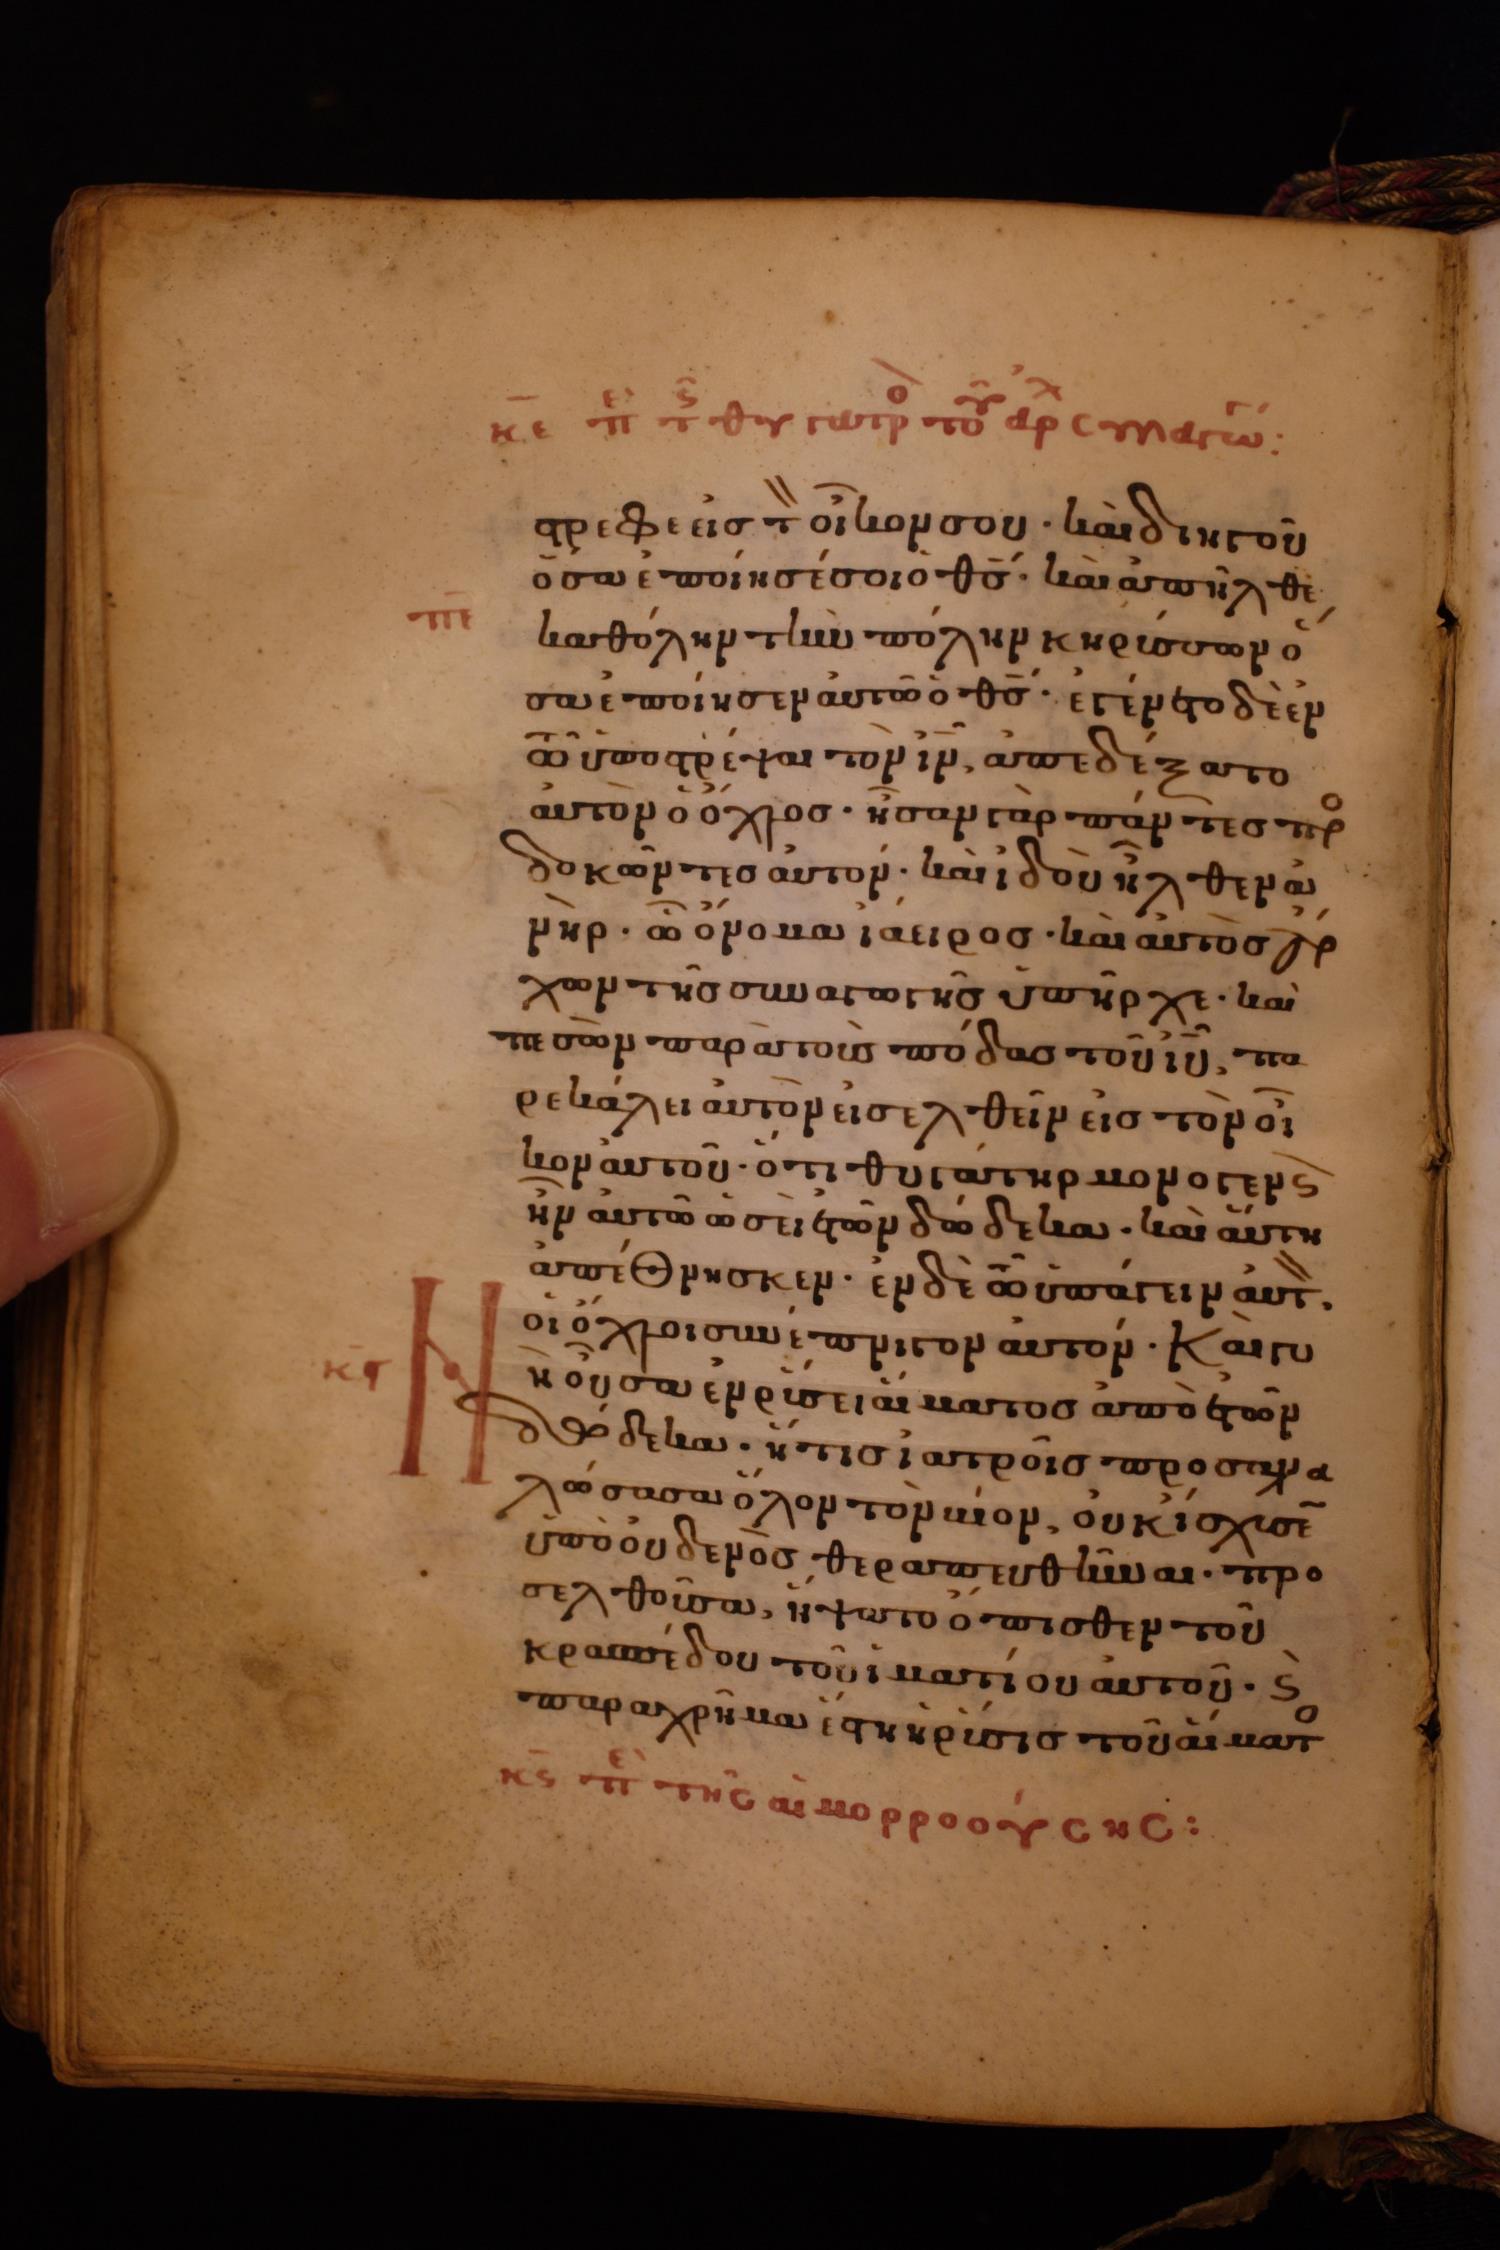 κε πει της θυγατρο του αρχισυναγωγ:
στρεφε εἰς τ οἶκον σου · καὶ διηγοῦ
ὅσα ἐποίησέ σοι ὁ θς · καὶ ἀπῆλθε
πε καθόλην τὴν πόλην κηρύσσων ὅ
σα ἐποίησεν αὐτῶ ὁ θς · ἐγένετο δὲ ἐν
τῶ ὑποστρέψαι τὸν ιν, ἀπεδέξατο
αὐτὸν ὁ ὄχλος · ἦσαν γὰρ πάντες προ
δοκῶντες αὐτόν · καὶ ἰδοὺ ἦλθεν ἀ
νὴρ · ὧ ὄνομα ἰάειρος · καὶ αὐτὸς ἄρ
χων τῆς συναγωγῆς ὑπῆρχε · καὶ
πεσὼν παρὰ τοὺς πόδας τοῦ ιυ, πα
ρεκάλει αὐτὸν εἰσελθεῖν εἰς τὸν οἶ
κον αὐτοῦ · ὅτι θυγάτηρ μονογενς
ἦν αὐτῶ ὡσεὶ ἐτῶν δώδεκα · καὶ αὕτη
ἀπέθνησκεν · ἐν δὲ τῶ ὑπάγειν αὐτ,
οἱ ὄχλοι συνέπνιγον αὐτόν · Καὶ γυ
κϛ Νὴ οὖσα ἐν ῥύσει αἵματος ἀπὸ ἐτῶν
δώδεκα · ἥτις ἰατροῖς προσανα
λώσασα ὅλον τὸν βίον, οὐκ ἴσχυσε
ὑπὸ οὐδενὸς θεραπευθῆναι · προ
σελθοῦσα, ἥψατο ὄπισθεν τοῦ
κρασπέδου τοῦ ἱματίου αὐτοῦ · ϛ
παραχρῆμα ἔστη ἡ ῥύσις τοῦ αἵματο
κϛ πει της αἱμορροούσης: